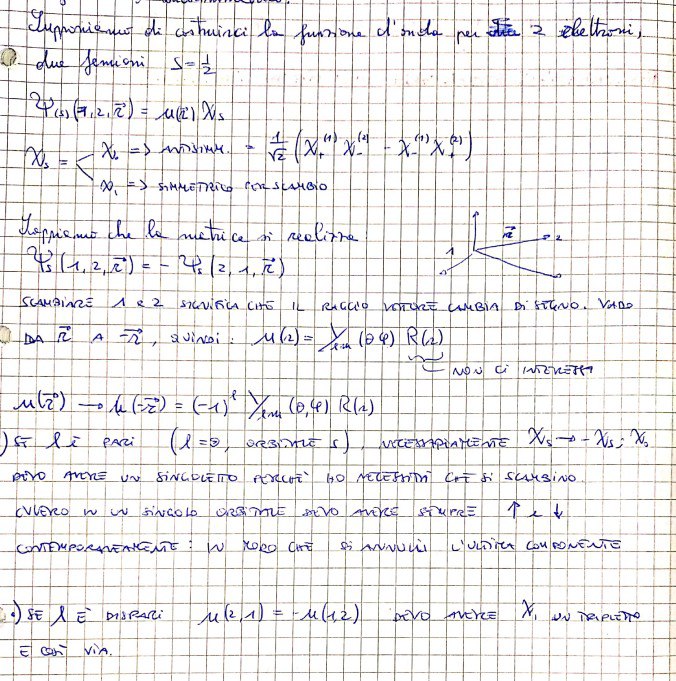 Supponiamo di costruirci la funzione d'onda per 2 elettroni,
due fermioni S=1/2
Ψ(s)(1,2,r⃗) = u(r⃗) χs
χs = χ₀ => ANTISIMM. = 1/√2 (χ₊⁽¹⁾ χ₋⁽²⁾ - χ₋⁽¹⁾ χ₊⁽²⁾)
χ₁ => SIMMETRICO PER SCAMBIO
Sappiamo che la metrica si realizza:
1 r⃗ 2
Ψs(1,2,r⃗) = - Ψs(2,1,r⃗)
SCAMBIARE 1 e 2 SIGNIFICA CHE IL RAGGIO VETTORE CAMBIA DI SEGNO. VADO
DA r⃗ A -r⃗, QUINDI: u(r) = Yℓm(θ,φ) R(r)
NON CI INTERESSA
u(r⃗) → u(-r⃗) = (-1)^ℓ Yℓm(θ,φ) R(r)
) SE ℓ È PARI (ℓ=0, ORBITALE s), NECESSARIAMENTE χs → -χs; χ₀
DEVO AVERE UN SINGOLETTO PERCHÈ HO NECESSITÀ CHE SI SCAMBINO.
OVVERO IN UN SINGOLO ORBITALE DEVO AVERE SEMPRE ↑ e ↓
CONTEMPORANEAMENTE: IN MODO CHE SI ANNULLI L'ULTIMA COMPONENTE
•) SE ℓ È DISPARI u(2,1) = -u(1,2) DEVO AVERE χ₁ UN TRIPLETTO
E COSÌ VIA.